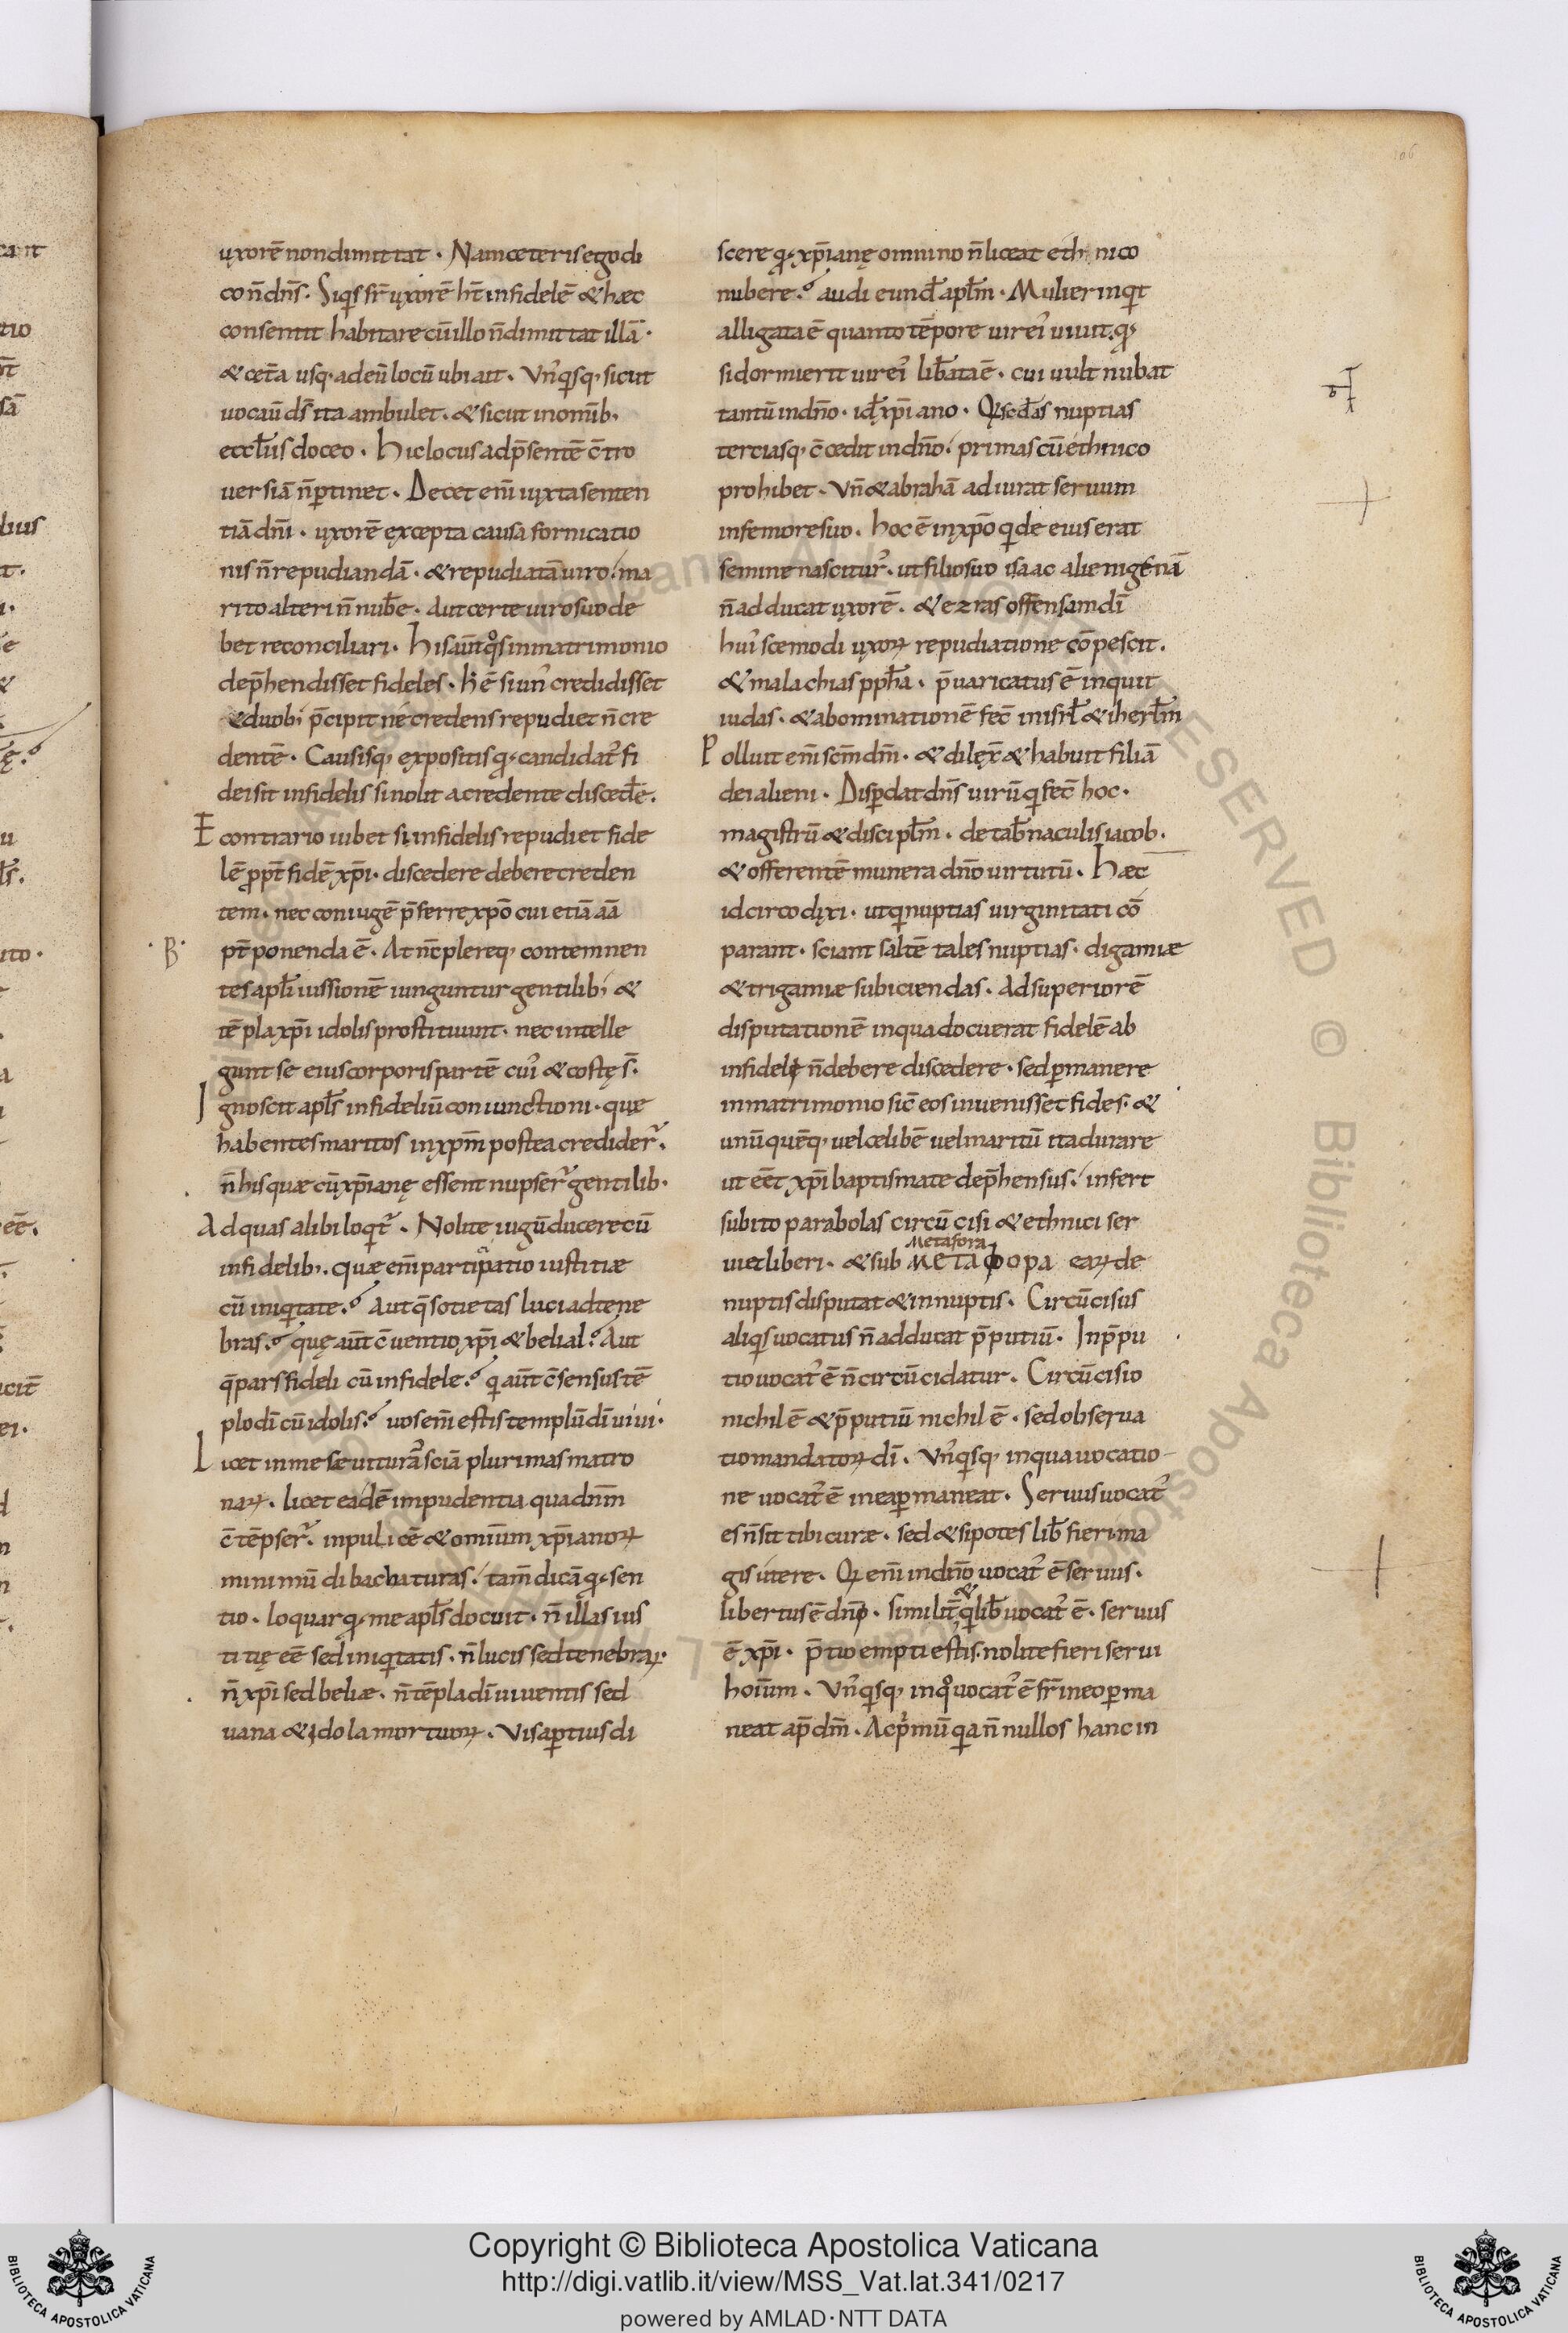 106
uxorē non dimittat · Nam ceteris ego di
co n̄ dn̄s · Siqͥs fr̄ uxorē ht̄ infidelē & hæc
consentit habitare cū illo n̄ dimittat illā ·
& cet̄a usq; ad eū locū ubi ait · Vn͛qͥsq; sicut
uocauit ds̄ ita ambulet · & sicut in omīb;
eccl̄iis doceo · Hic locus ad p̄sentē c̄tro
uersiā n̄ ꝑtinet · Decet em̄ iuxta senten
tiā dn̄i · uxorē excepta causa fornicatio
nis n̄ repudiandā · & repudiatā uiuo ma
rito alteri n̄ nub̄e · Aut certe uiro suo de
bet reconciliari · His aūt qͦs in matrimonio
dep̄hendisset fideles · h̄ ē si un͛ credidisset
e duob; p̄cipit ne credens repudiet n̄ cre
dentē · Causisq; expositis qͩ candidat͛ fi
dei sit infidelis si nolit a credente disced̄e ·
E contrario iubet si infidelis repudiet fide
lē ꝓpt̄ fidē xp̄i · discedere debere creden
tem · nec coniugē p̄ferre xp̄o cui etiā aīa
· B · pt̄ponenda ē · At nc̄ plereq; contemnen
tes apl̄i iussionē iunguntur gentilib; &
tēpla xp̄i idolis prostituunt · nec intelle
gunt se eius corporis partē cui͛ & costę s̄ ·
Ignoscit apl̄s infideliū coniunctioni · quę
habentes maritos in xp̄m postea credider͛ ·
n̄ his quæ cū xp̄ianę essent nupser͛ gentilib ·
Ad quas alibi loqͥt͛ · Nolite iugū ducere cū
infidelib; · Quæ em̄ participatio iustitiæ
cū iniqͥtate · Aut q̄ societas luci ad tene
bras · quę aūt c̄uentio xp̄i & belial · Aut
q̄ pars fideli cū infidele · qͥ aūt c̄sensus tē
plo dī cū idolis · uos em̄ estis templū dī uiui ·
Licet in me sæuiturā sciā plurimas matro
naꝝ · licet eadē impudentia qua dn̄m
c̄tēpser͛ · in pulicē & omīum xp̄ianoꝝ
minimū dibachaturas · tam̄ dicā qͩ sen
tio · loquar qͩ me apl̄s docuit · n̄ illas ius
titię eē̄ sed iniqͥtatis · n̄ lucis sed tenebraꝝ ·
n̄ xp̄i sed beliæ · n̄ tēpla dī uiuentis sed
uana & idola mortuoꝝ · Vis aꝑtius di
scere qͩ xp̄ianę omnino n̄ liceat ethnico
nubere · audi eund̄ apl̄m · Mulier inqͥt
alligata ē quanto tēpore uir ei͛ uiuit · qͩ
si dormierit uir ei͛ lib̄ata ē · cui uult nubat
tantū in dn̄o · id̄ xp̄iano · Qͥ sed̄as nuptias
terciasq; c̄cedit in dn̄o · primas cū ethnico
prohibet · Vn̄ & abrahā adiurat seruum
in femore suo · hoc ē in xp̄o qͥ de eius erat
semine nascitur͛ · ut filio suo isaac alienigenā
n̄ adducat uxorē · & ezras offensam dī
hui͛scemodi uxoꝝ repudiatione cōpescit ·
& malachias pph̄a · p̄uaricatus ē inquit
iudas · & abominationē fec̄ in isrl̄ & iherl̄m
Polluit em̄ sc̄m dm̄ · & dilex̄ & habuit filiā
dei alieni · Disꝑdat dn̄s uirū qͥ fec̄ hoc ·
magistrū & discipl̄m · de tab̄naculis iacob ·
& offerentē munera dn̄o uirtutū · Hæc
idcirco dixi · ut qͥ nuptias uirginitati cō
parant · sciant saltē tales nuptias · digamiæ
& trigamiæ subiciendas · Ad superiorē
disputationē in qua docuerat fidelē ab
infideli n̄ debere discedere · sed ꝑmanere
in matrimonio sic̄ eos inuenisset fides · &
unū quēq; uel celibē uel maritū ita durare
ut eēt xp̄i baptismate dep̄hensus · infert
subito parabolas circūcisi & ethnici ser
Metafora
ui et liberi · & sub ΜΕΤΑΦΟΡΑ eaꝝ de
nuptis disputat & innuptis · Circūcisus
aliqͥs uocatus n̄ adducat p̄putiū · In p̄pu
tio uocat͛ ē n̄ circūcidatur · Circūcisio
nichil ē & p̄putiū nichil ē · sed obserua
tio mandatoꝝ dī · Vn͛qͥsq; in qua uocatio
ne uocat͛ ē in ea ꝑmaneat · Seruus uocat͛
es n̄ sit tibi curæ · sed & si potes lib̄ fieri ma
gis utere · Qͥ em̄ in dn̄o uocat͛ ē seruus ·
libertus ē dn̄i · similit̄ & qͥ lib̄ uocat͛ ē · seruus
ē xp̄i · p̄tio empti estis · nolite fieri serui
hoīum · Vn͛qͥsq; in qͦ uocat͛ ē fr̄ in eo ꝑma
neat ap̄ dm̄ · Ac pͥmū qͥa n̄nullos hanc in
Copyright © Biblioteca Apostolica Vaticana
http://digi.vatlib.it/view/MSS_Vat.lat.341/0217
powered by AMLAD·NTT DATA
BIBLIOTECA APOSTOLICA VATICANA
BIBLIOTECA APOSTOLICA VATICANA